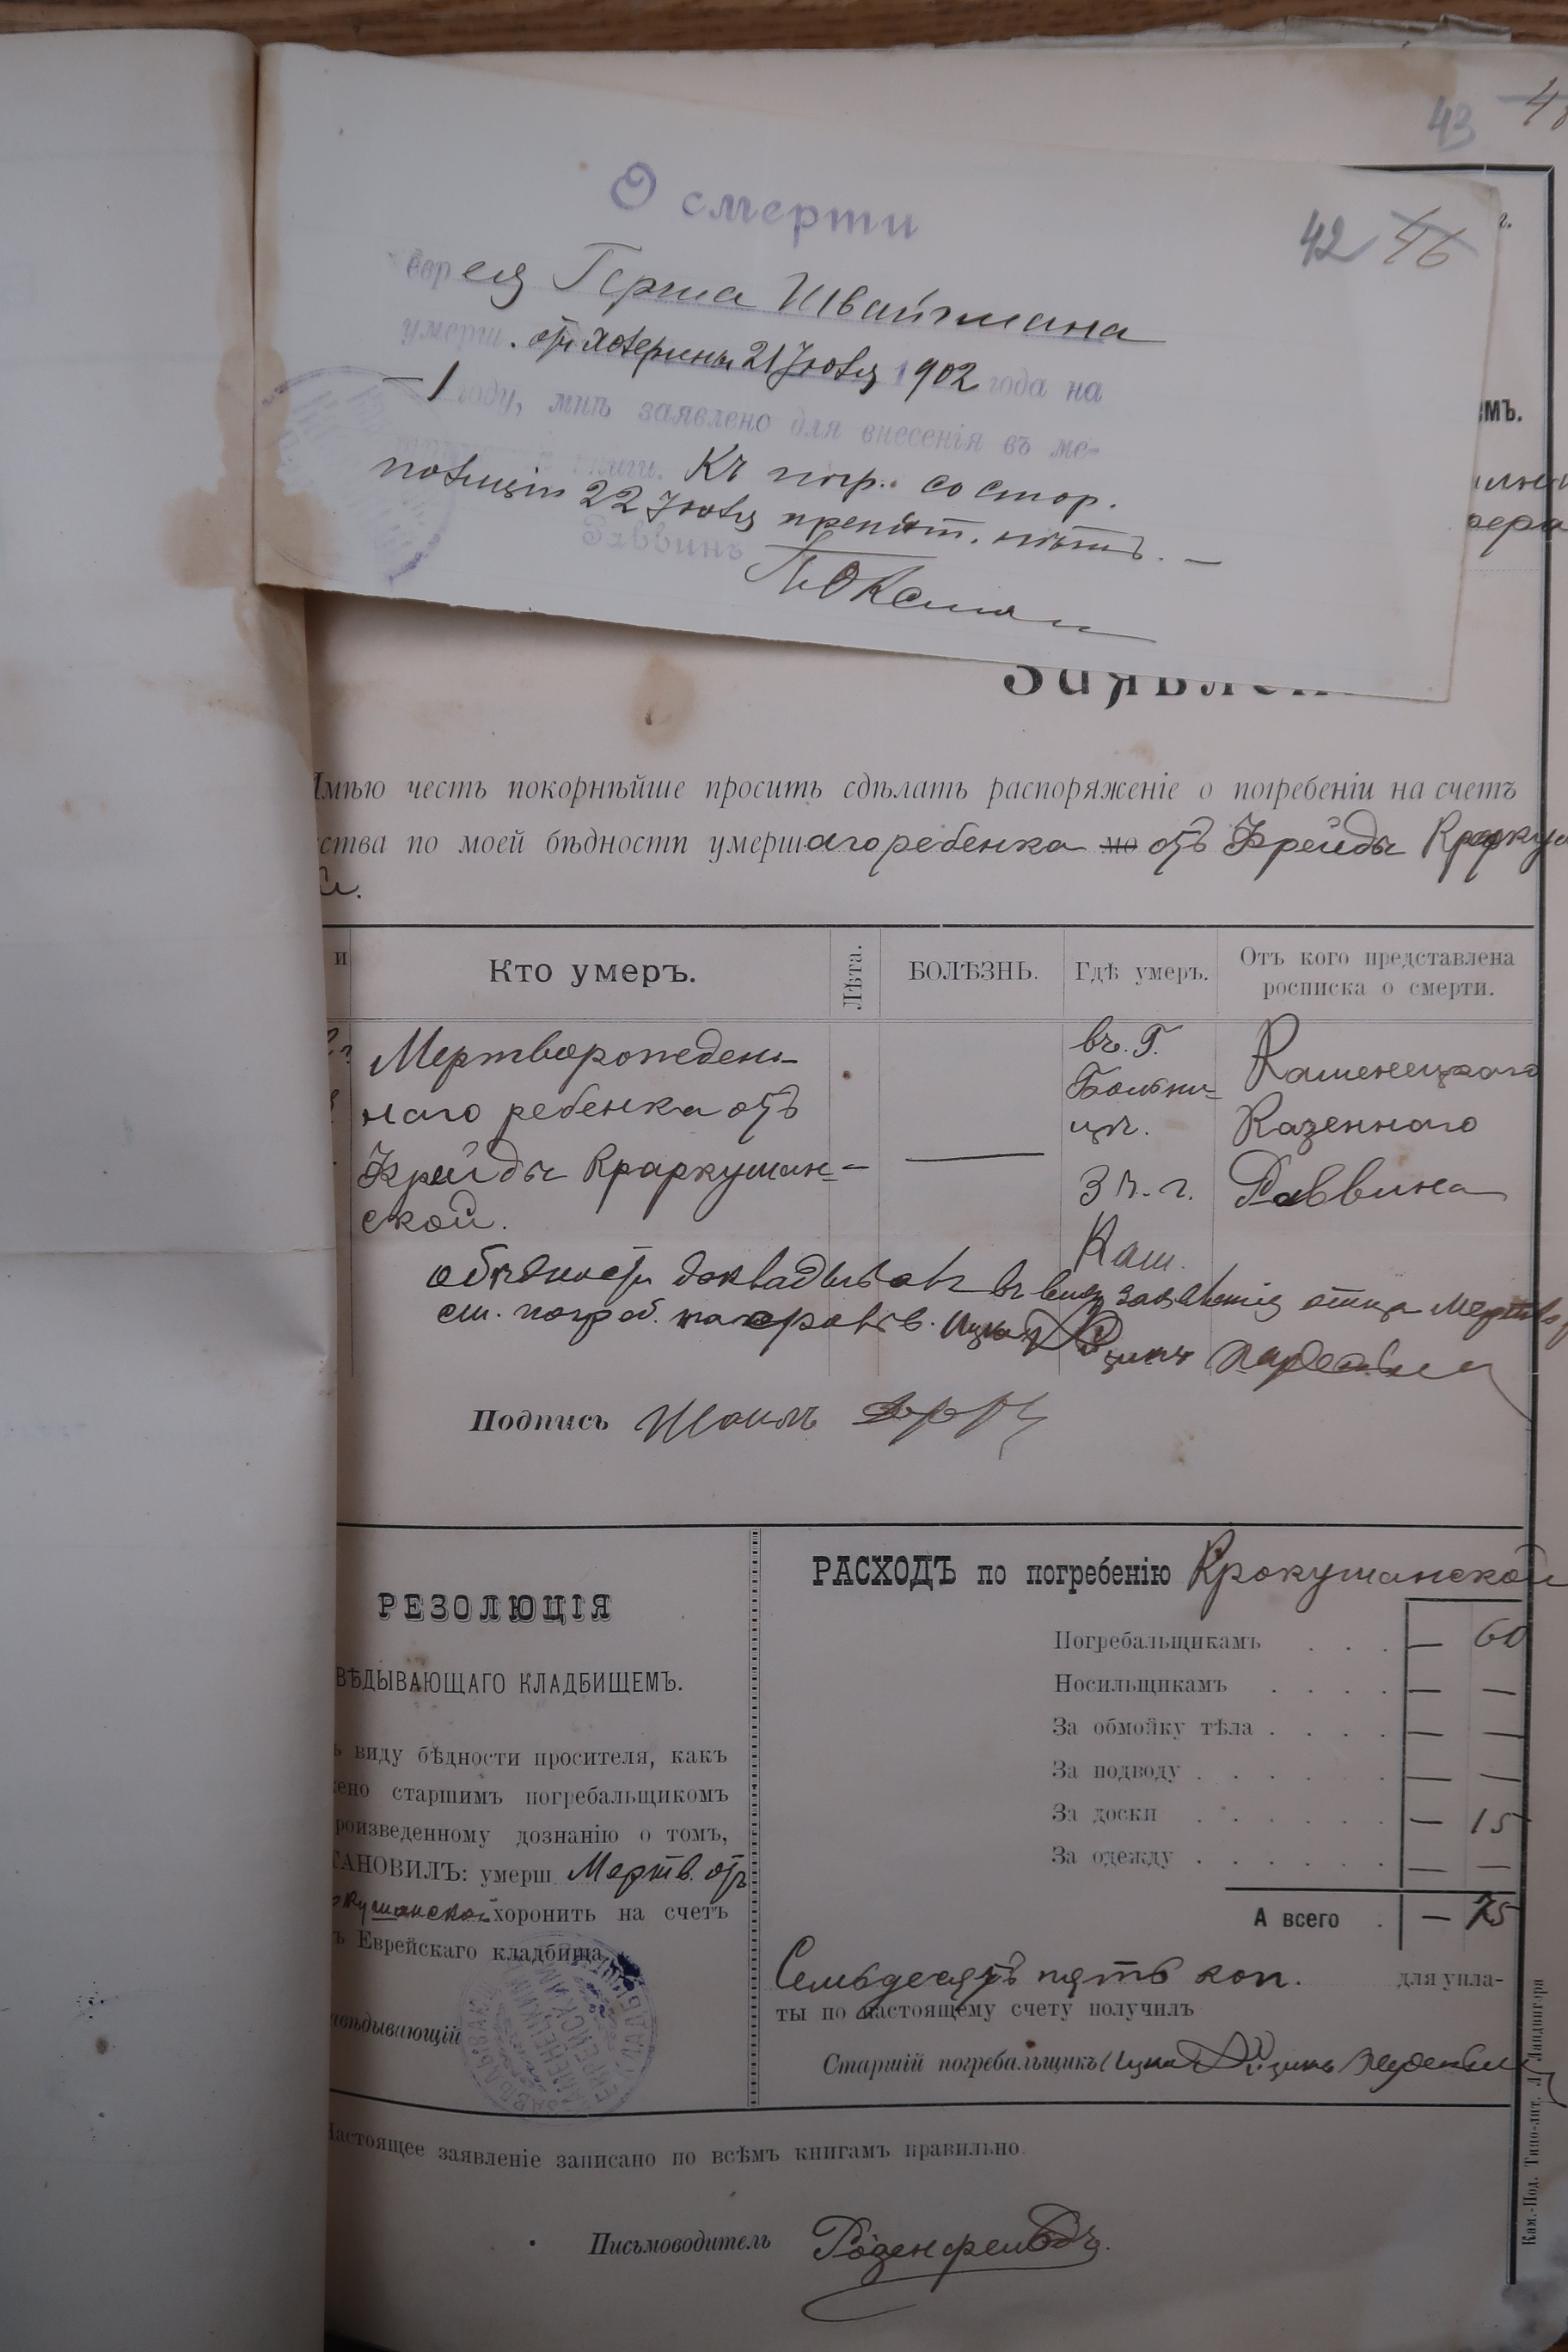 43
О смерти
42 46
еврея Герша Швайгмана
умерш. отъ холерины 21 Іюля 1902 года на
—1 году, мнѣ заявлено для внесенія въ ме-
книги. Къ погр. со стор.
полиціи 22 Іюля препят. нѣтъ. —
Раввинъ
мъ.
Заявлен
Имѣю честь покорнѣйше просить сдѣлать распоряженіе о погребеніи на счетъ
ства по моей бѣдности умершаго ребенка отъ Фрейды
и
Кто умеръ.
Лѣта.
БОЛѢЗНЬ.
Гдѣ умеръ.
Отъ кого представлена
росписка о смерти.
Мертворожден-
наго ребенка отъ
Фрейды Краркушан-
ской.
—
въ. Г.
Больни-
цѣ.
3 ч. г.
Каменецкаго
Казеннаго
Раввина
Кам.
о бѣдности докладывалъ въ виду заявленія отца
ст. погреб. Ицко
Подпись
РЕЗОЛЮЦІЯ
ВѢДЫВАЮЩАГО КЛАДБИЩЕМЪ.
ъ виду бѣдности просителя, какъ
ено старшимъ погребальщикомъ
роизведенному дознанію о томъ,
ТАНОВИЛЪ: умерш Мертв. отъ
кушанской хоронить на счетъ
ъ Еврейскаго кладбища.
авѣдывающій
РАСХОДЪ по погребенію Крокушанской
Погребальщикамъ . . . — 60
Носильщикамъ . . . . — —
За обмойку тѣла . . . . — —
За подводу . . . . . . — —
За доски . . . . . . — 15
За одежду . . . . . . — —
А всего . — 75
Семьдесятъ пять коп. для упла-
ты по настоящему счету получилъ
Старшій погребальщикъ Ицко
Настоящее заявленіе записано по всѣмъ книгамъ правильно.
Письмоводитель Розенфельдъ.
Кам.-Под. Типо-лит. Л. Ландвигера